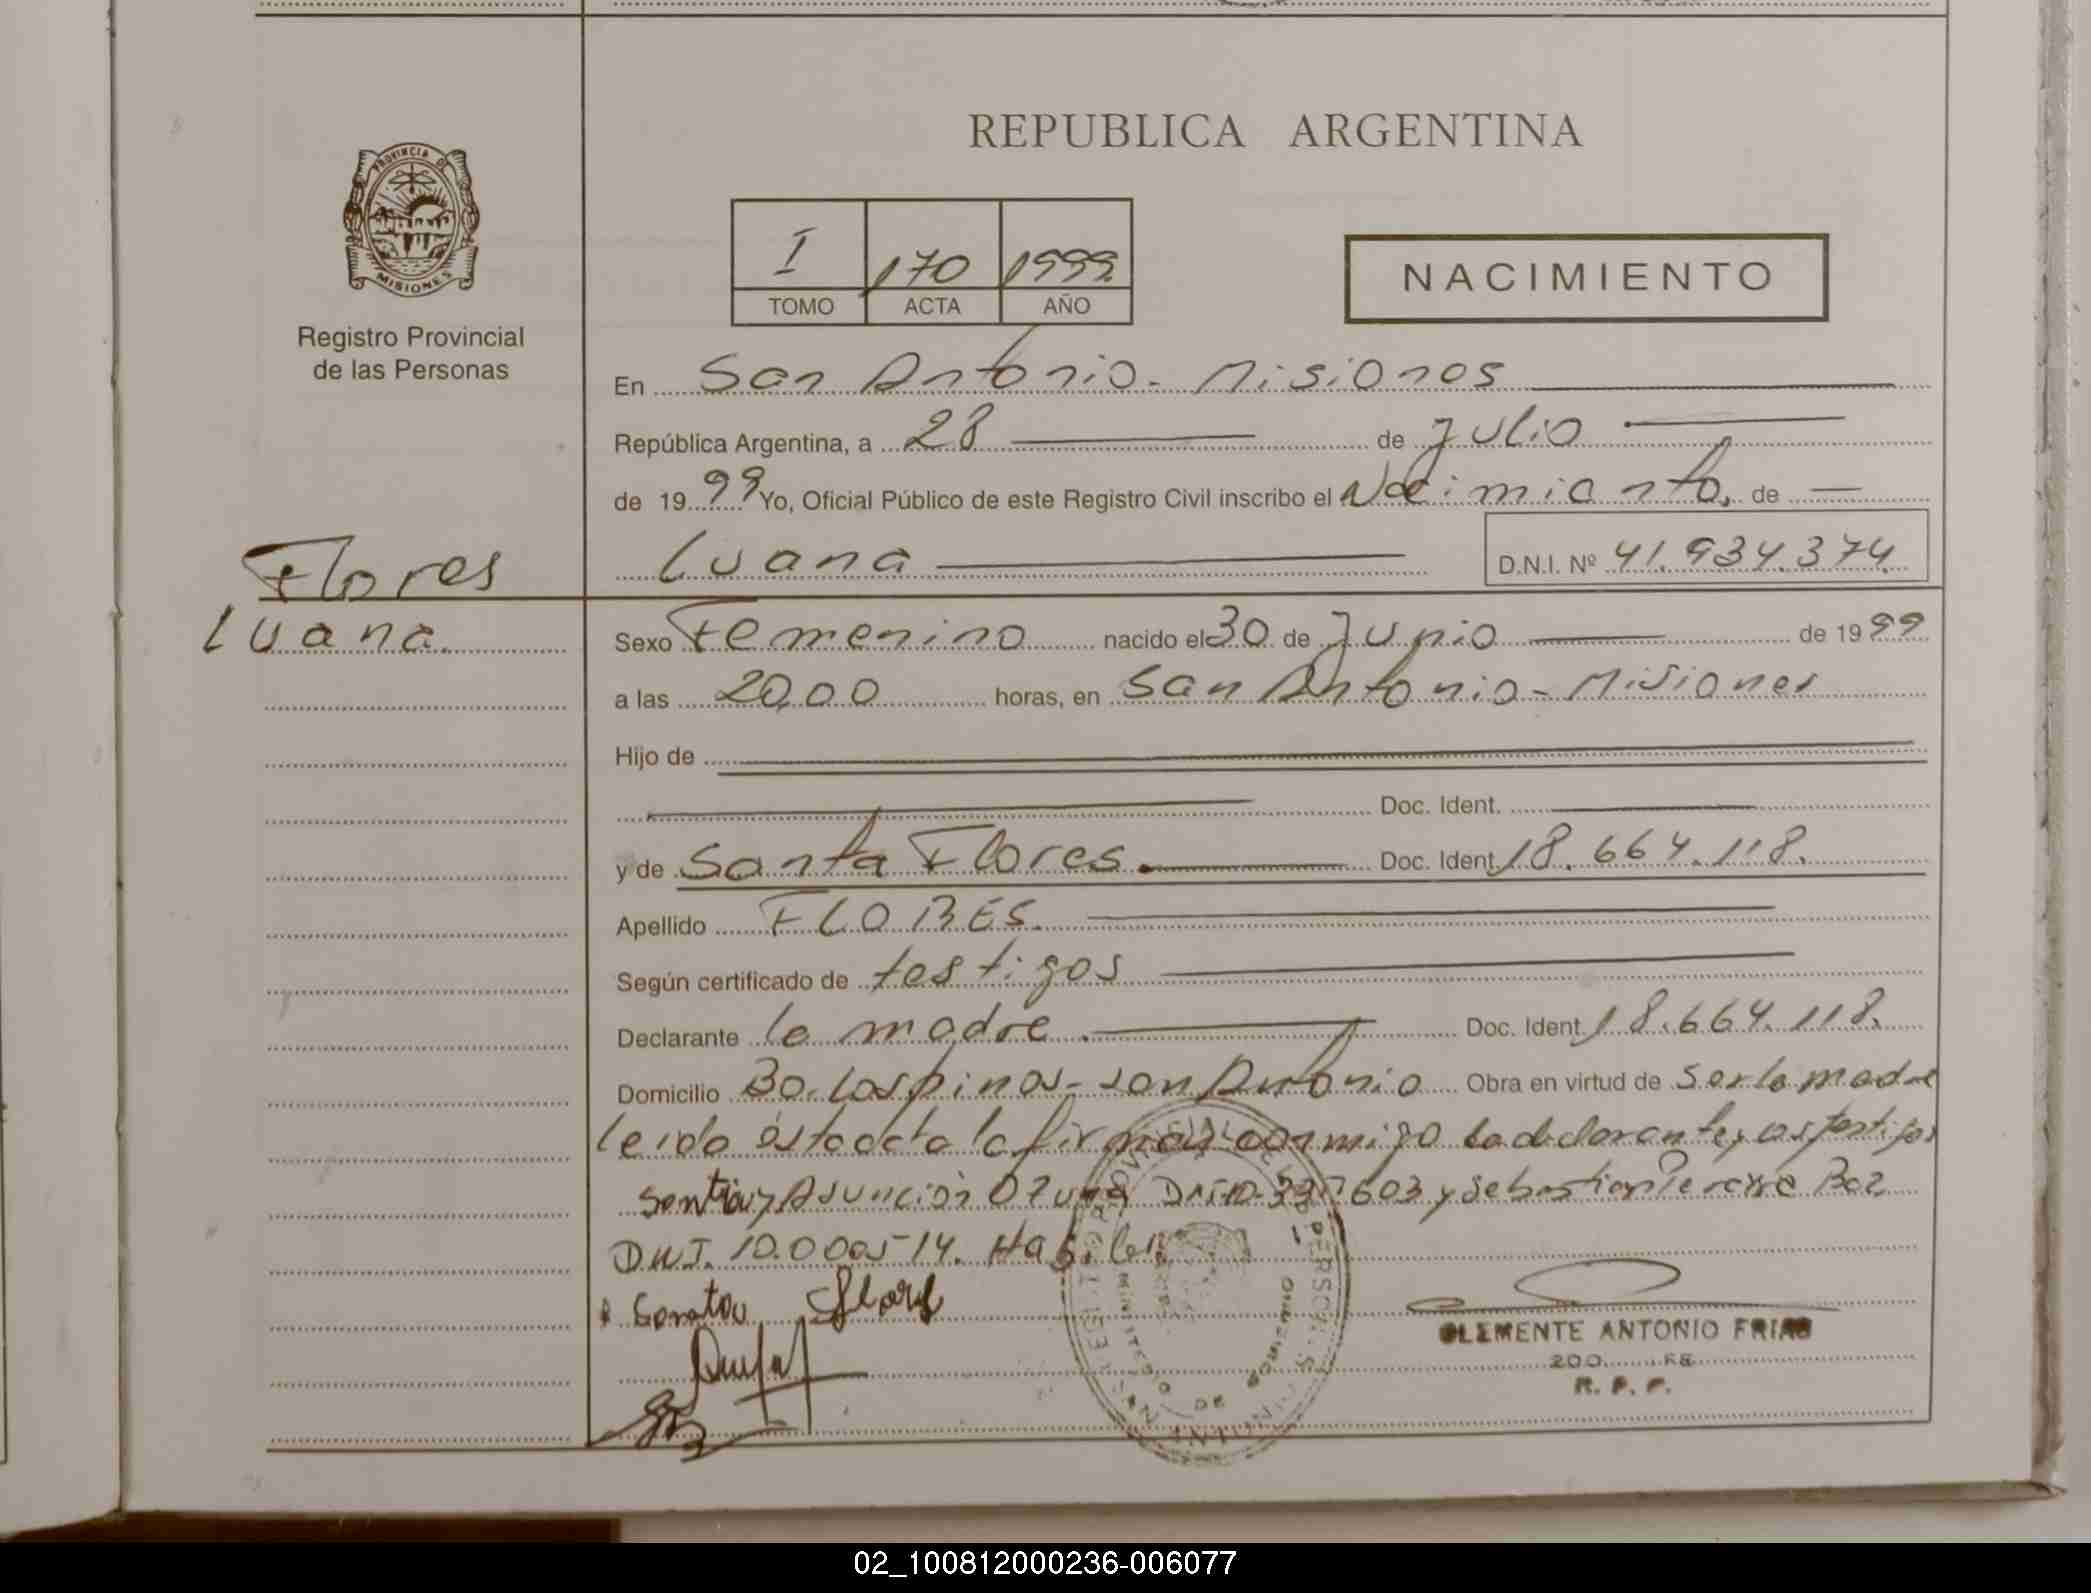 REPUBLICA ARGENTINA
PROVINCIA DE
MISIONES
Registro Provincial
de las Personas
I 170 1999
TOMO ACTA AÑO
NACIMIENTO
En San Antonio - Misiones
República Argentina, a 28 de Julio
de 1999 Yo, Oficial Público de este Registro Civil inscribo el Nacimiento, de
Luana D.N.I. Nº 41.934.374
Flores
Luana
Sexo Femenino nacido el 30 de Junio de 1999
a las 20,00 horas, en San Antonio - Misiones
Hijo de
Doc. Ident.
y de Santa Flores. Doc. Ident. 18.664.118.
Apellido FLORES.
Según certificado de testigos
Declarante la madre. Doc. Ident. 18.664.118.
Domicilio Bo. Los pinos - San Antonio Obra en virtud de Ser la madre
leida ésta acta la firman conmigo la declarante y los testigos
Asunción y Sebastian
DNI.
Flores
CLEMENTE ANTONIO FRIAS
R. P. P.
02_100812000236-006077